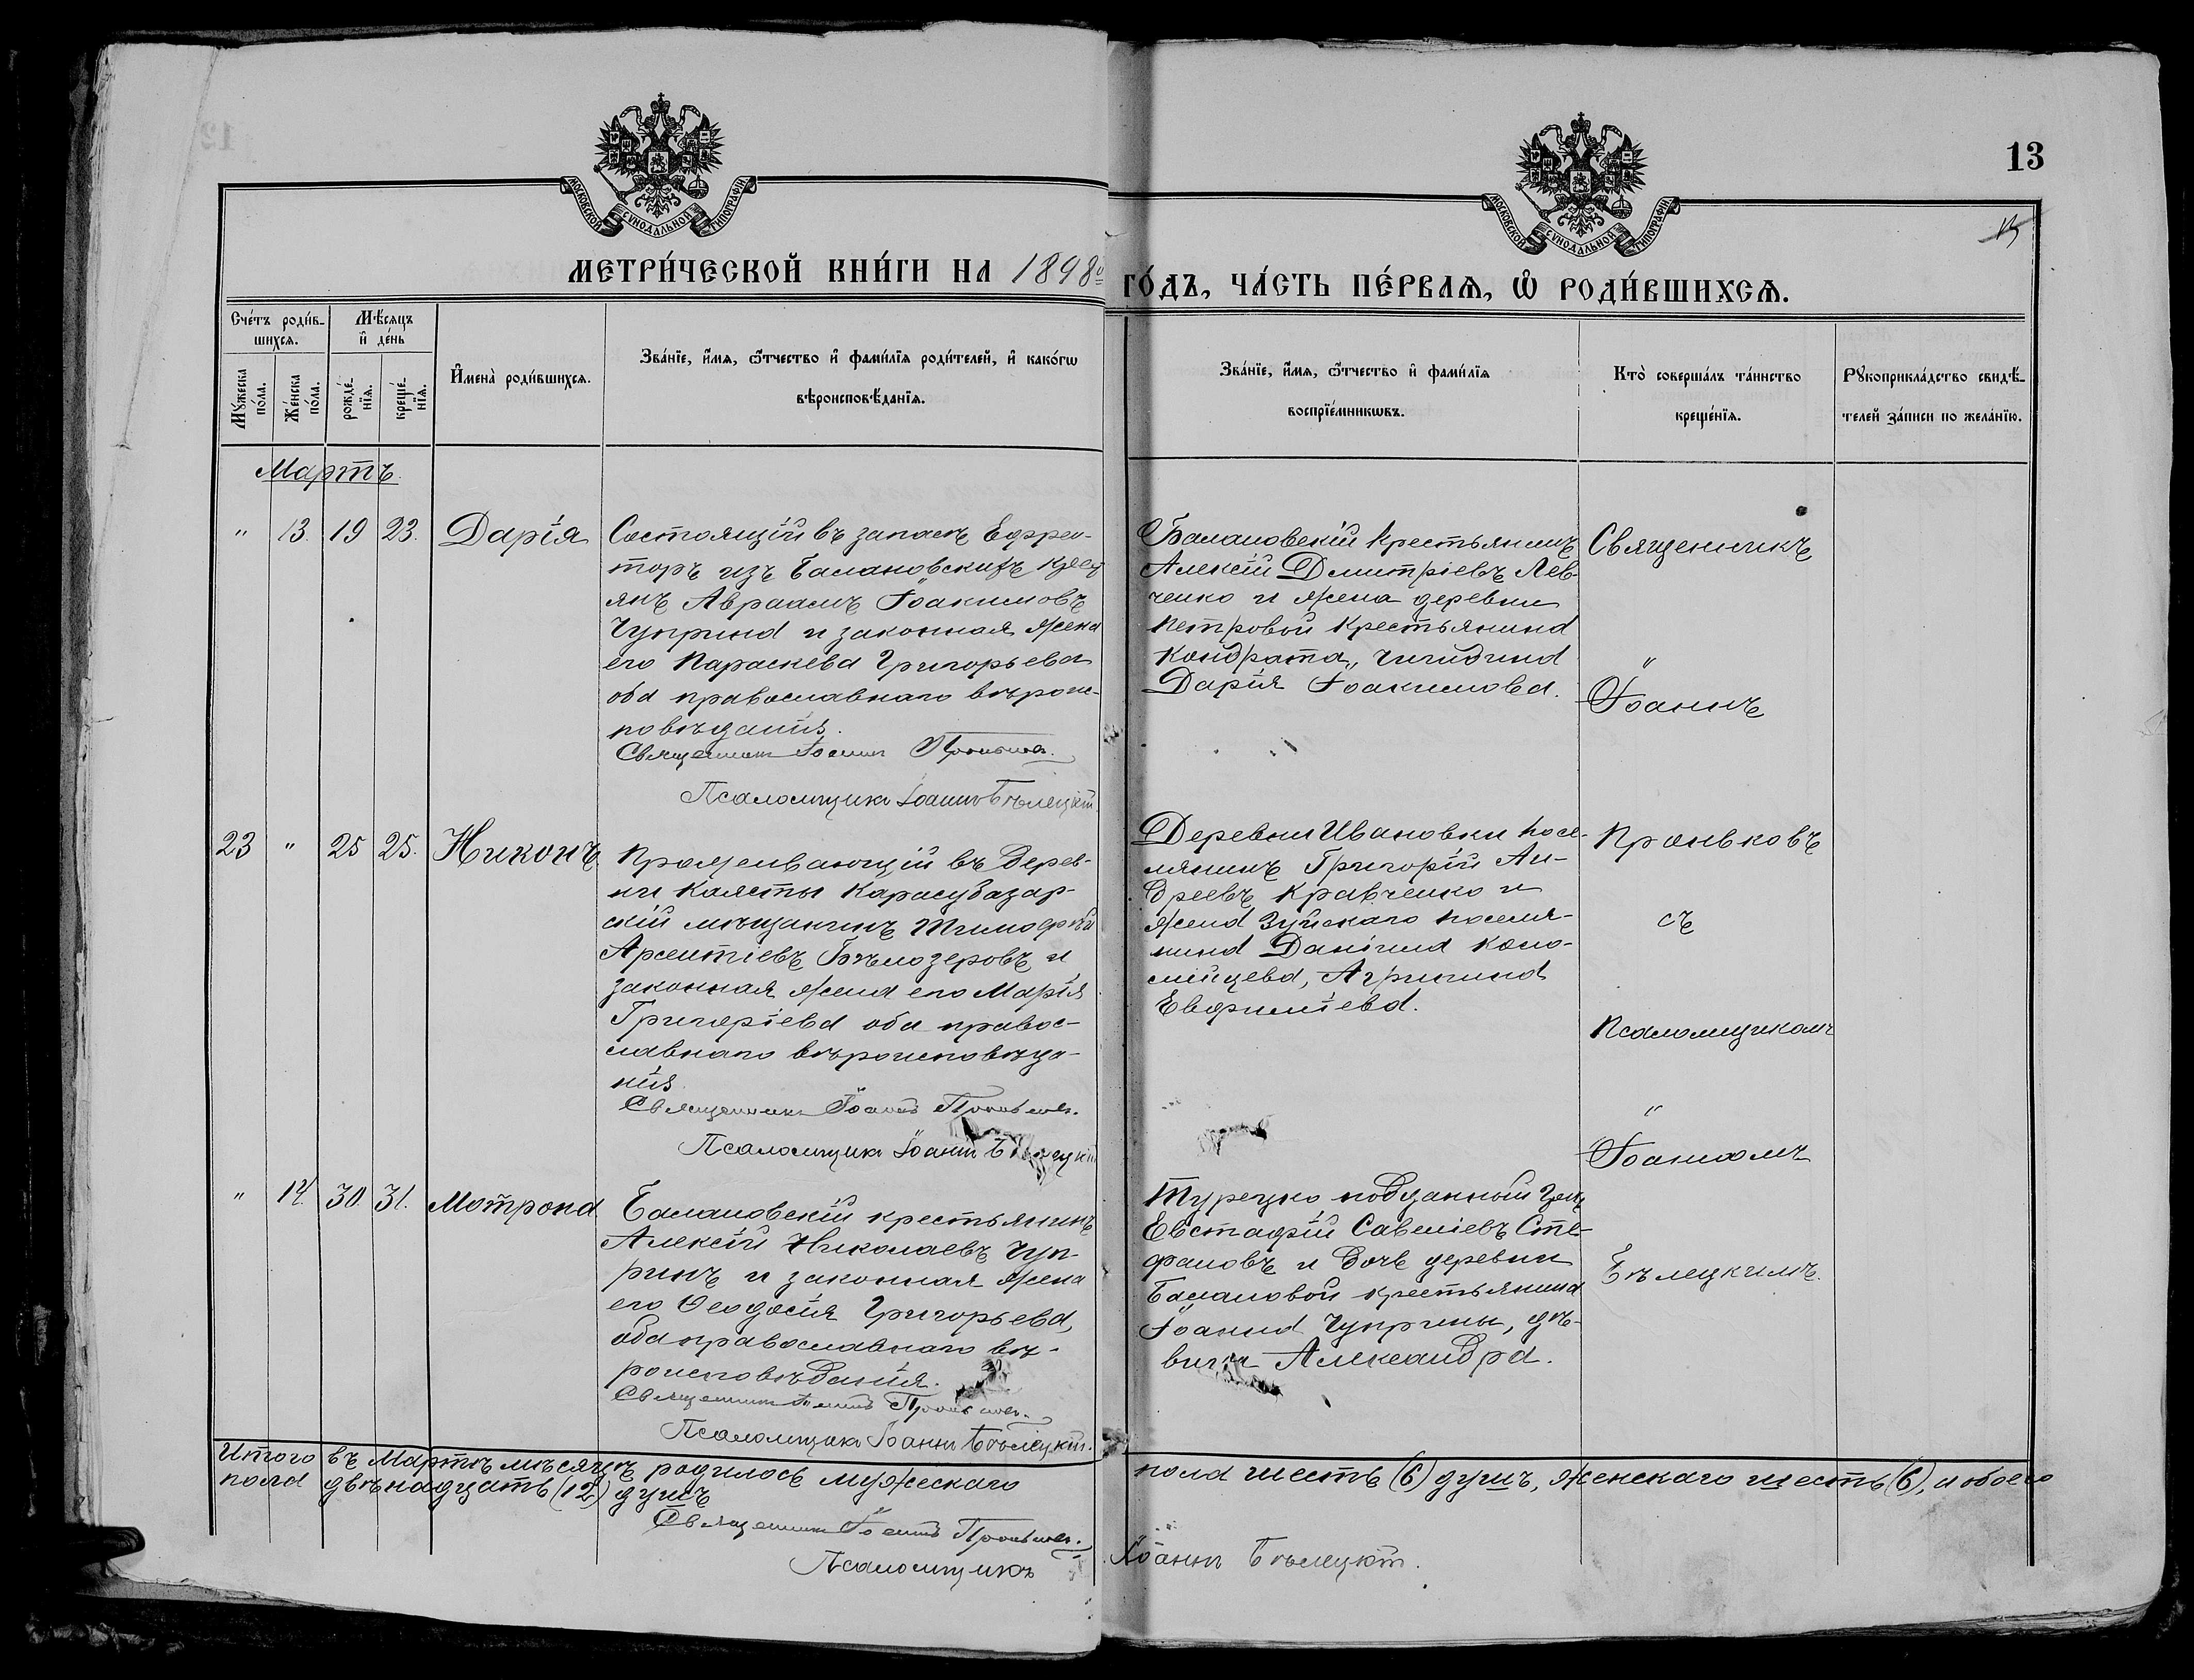 13
МОСКОВСКОЙ СУНОДАЛЬНОЙ ТИПОГРАФІИ
МОСКОВСКОЙ СУНОДАЛЬНОЙ ТИПОГРАФІИ
МЕТРИ́ЧЕСКОЙ КНИ́ГИ НА 1898 го́дъ, ЧА́СТЬ ПЕ́РВАѦ, Ѡ҆ РОДИ́ВШИХСѦ.
Сче́тъ роди́в-
шихсѧ.
Мꙋ́жеска по́ла.
Же́нска по́ла.
Мѣ́сѧцъ
и҆ де́нь
рожде́-
нїѧ.
креще́-
нїѧ.
И҆мена̀ роди́вшихсѧ.
Зва́нїе, и҆́мѧ, ѻ҆́тчество и҆ фами́лїѧ роди́телей, и҆ како́гѡ
вѣроисповѣ́данїѧ.
Зва́нїе, и҆́мѧ, ѻ҆́тчество и҆ фами́лїѧ
воспрїе́мникѡвъ.
Кто̀ соверша́лъ та́инство
креще́нїѧ.
Рꙋкоприкла́дство свидѣ́-
телей за́писи по жела́нїю.
Мартъ.
" 13. 19 23. Дарія
Состоящій въ запасѣ Ефрей-
торъ изъ Балановскихъ крест
янъ Авраамъ Іоакимовъ
Чуприна и законная жена
его Параскева Григорьева
оба православнаго вѣроис-
повѣданія.
Священникъ Іоаннъ Проньковъ.
Псаломщикъ Іоаннъ Бѣлецкій
Балановскій крестьянинъ
Алексій Димитріевъ Лев-
ченко и жена деревни
Петровой крестьянина
Кондрата Чигидина
Дарія Іоакимова.
Священникъ
"
Іоаннъ
23 " 25 25. Никонъ
Проживающій въ дерев-
ни Каясты Карасубазар-
скій мѣщанинъ Тимофѣй
Арсентіевъ Бѣлозеровъ и
законная жена его Марія
Григоріева оба правос-
лавнаго вѣроисповѣда-
нія
Священникъ Іоаннъ Проньковъ.
Псаломщикъ Іоаннъ Бѣлецкій
Деревни Ивановки посе-
лянинъ Григорій Ан-
дреевъ Кравченко и
жена Зуйскаго поселя-
нина Даніила Коло-
мійцева, Агрипина
Евфиміева.
Проньковъ
съ
Псаломщикомъ
"
Іоанномъ
" 14. 30. 31. Мотрона
Балановскій крестьянинъ
Алексій Николаевъ Чуп-
ринъ и законная жена
его Ѳеодосія Григорьева,
оба православнаго вѣ-
роисповѣданія.
Священникъ Іоаннъ Проньковъ.
Псаломщикъ Іоаннъ Бѣлецкій.
Турецко подданный
Евстафій Савеліевъ Сте-
фановъ и дочь деревни
Балановой крестьянина
Іоанна Чуприны, дѣ-
вица Александра.
Бѣлецкимъ.
Итого въ Мартѣ мѣсяцѣ родилось мужескаго пола шесть (6) душъ, женскаго шесть (6), и обоего
пола двѣнадцать (12) душъ
Священникъ Іоаннъ Проньковъ.
Псаломщикъ Іоаннъ Бѣлецкій.